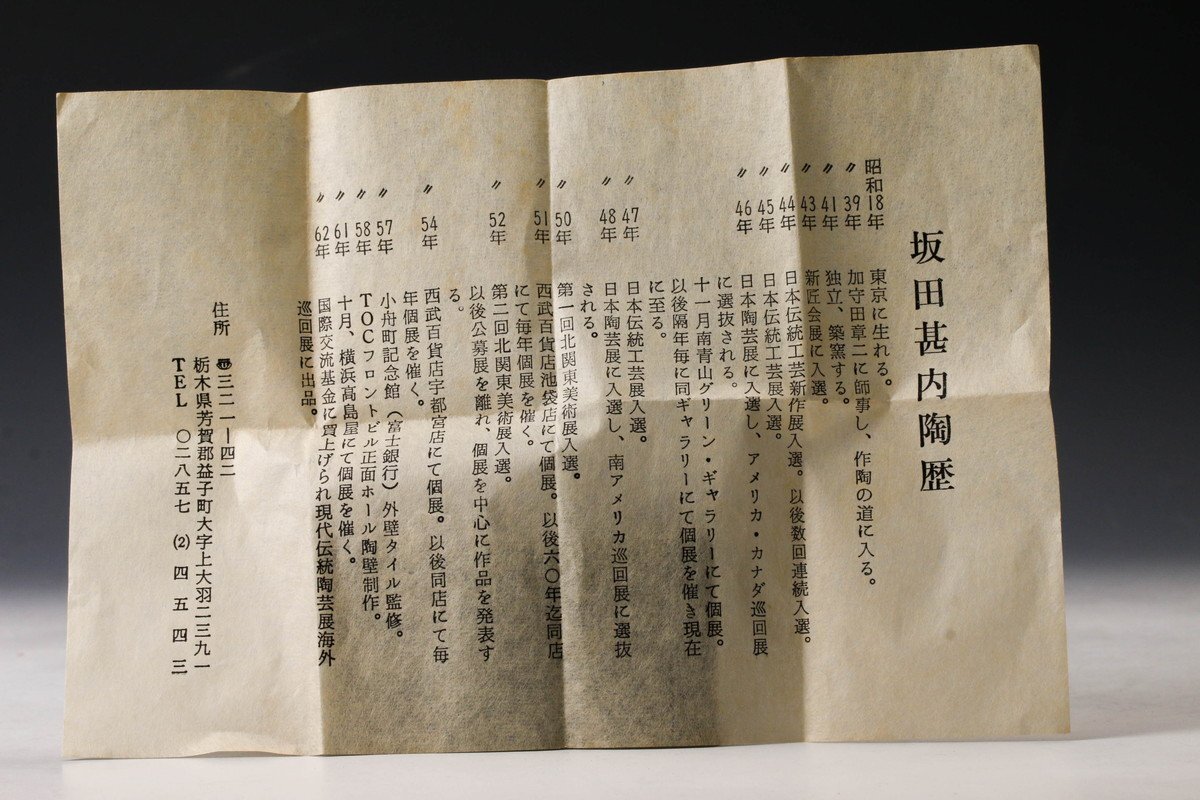 坂田甚内陶歴
昭和18年 東京に生れる。
〃 39年 加守田章二に師事し、作陶の道に入る。
〃 41年 独立、築窯する。
〃 43年 新匠会展に入選。
〃 44年 日本伝統工芸新作展入選。以後数回連続入選。
〃 45年 日本伝統工芸展入選。
〃 46年 日本陶芸展に入選し、アメリカ・カナダ巡回展
に選抜される。
十一月南青山グリーン・ギャラリーにて個展。
以後隔年毎に同ギャラリーにて個展を催き現在
に至る。
〃 47年 日本伝統工芸展入選。
〃 48年 日本陶芸展に入選し、南アメリカ巡回展に選抜
される。
〃 50年 第一回北関東美術展入選。
〃 51年 西武百貨店池袋店にて個展。以後六〇年迄同店
にて毎年個展を催く。
〃 52年 第二回北関東美術展入選。
以後公募展を離れ、個展を中心に作品を発表す
る。
〃 54年 西武百貨店宇都宮店にて個展。以後同店にて毎
年個展を催く。
〃 57年 小舟町記念館（富士銀行）外壁タイル監修。
〃 58年 TOCフロントビル正面ホール陶壁制作。
〃 61年 十月、横浜高島屋にて個展を催く。
〃 62年 国際交流基金に買上げられ現代伝統陶芸展海外
巡回展に出品。
住所 〠三二一ー四二
栃木県芳賀郡益子町大字上大羽二三九一
TEL 〇二八五七(2)四五四三